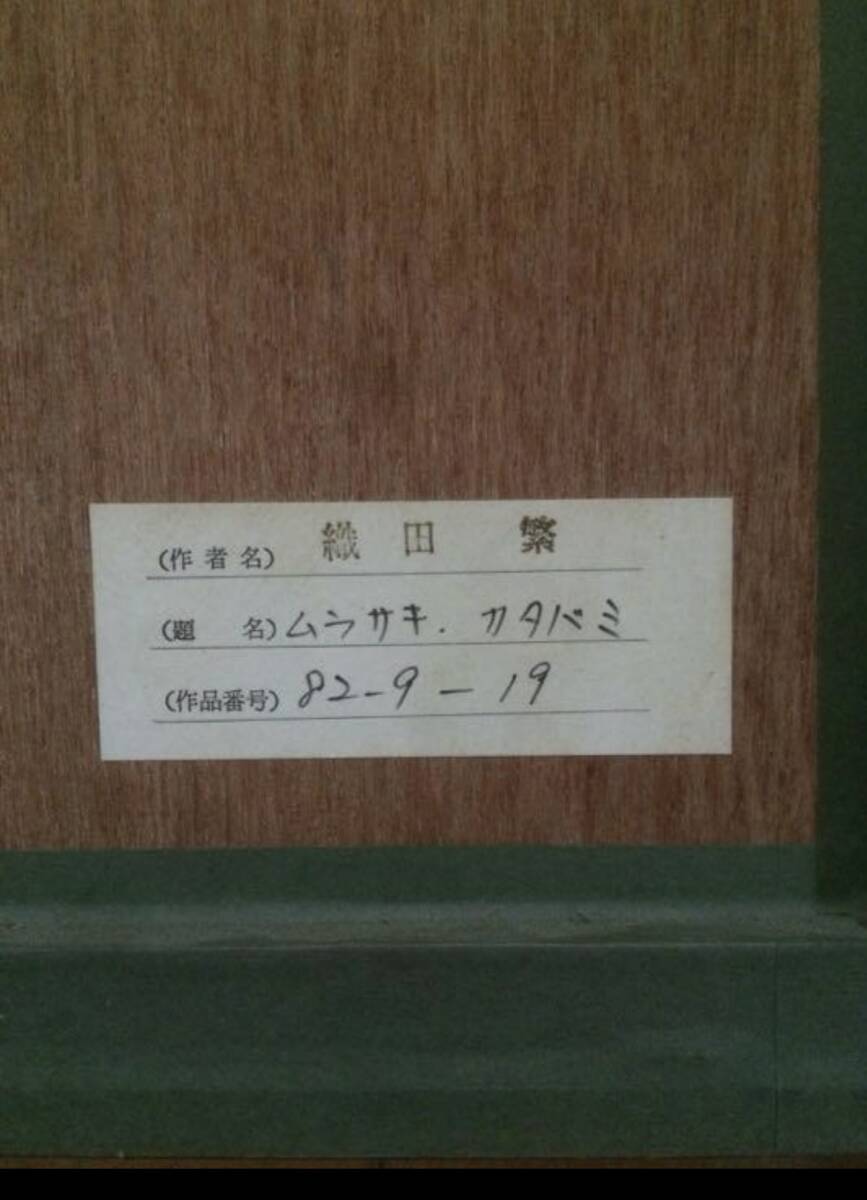 (作者名) 織田 繁
(題 名) ムラサキ. カタバミ
(作品番号) 82-9-19